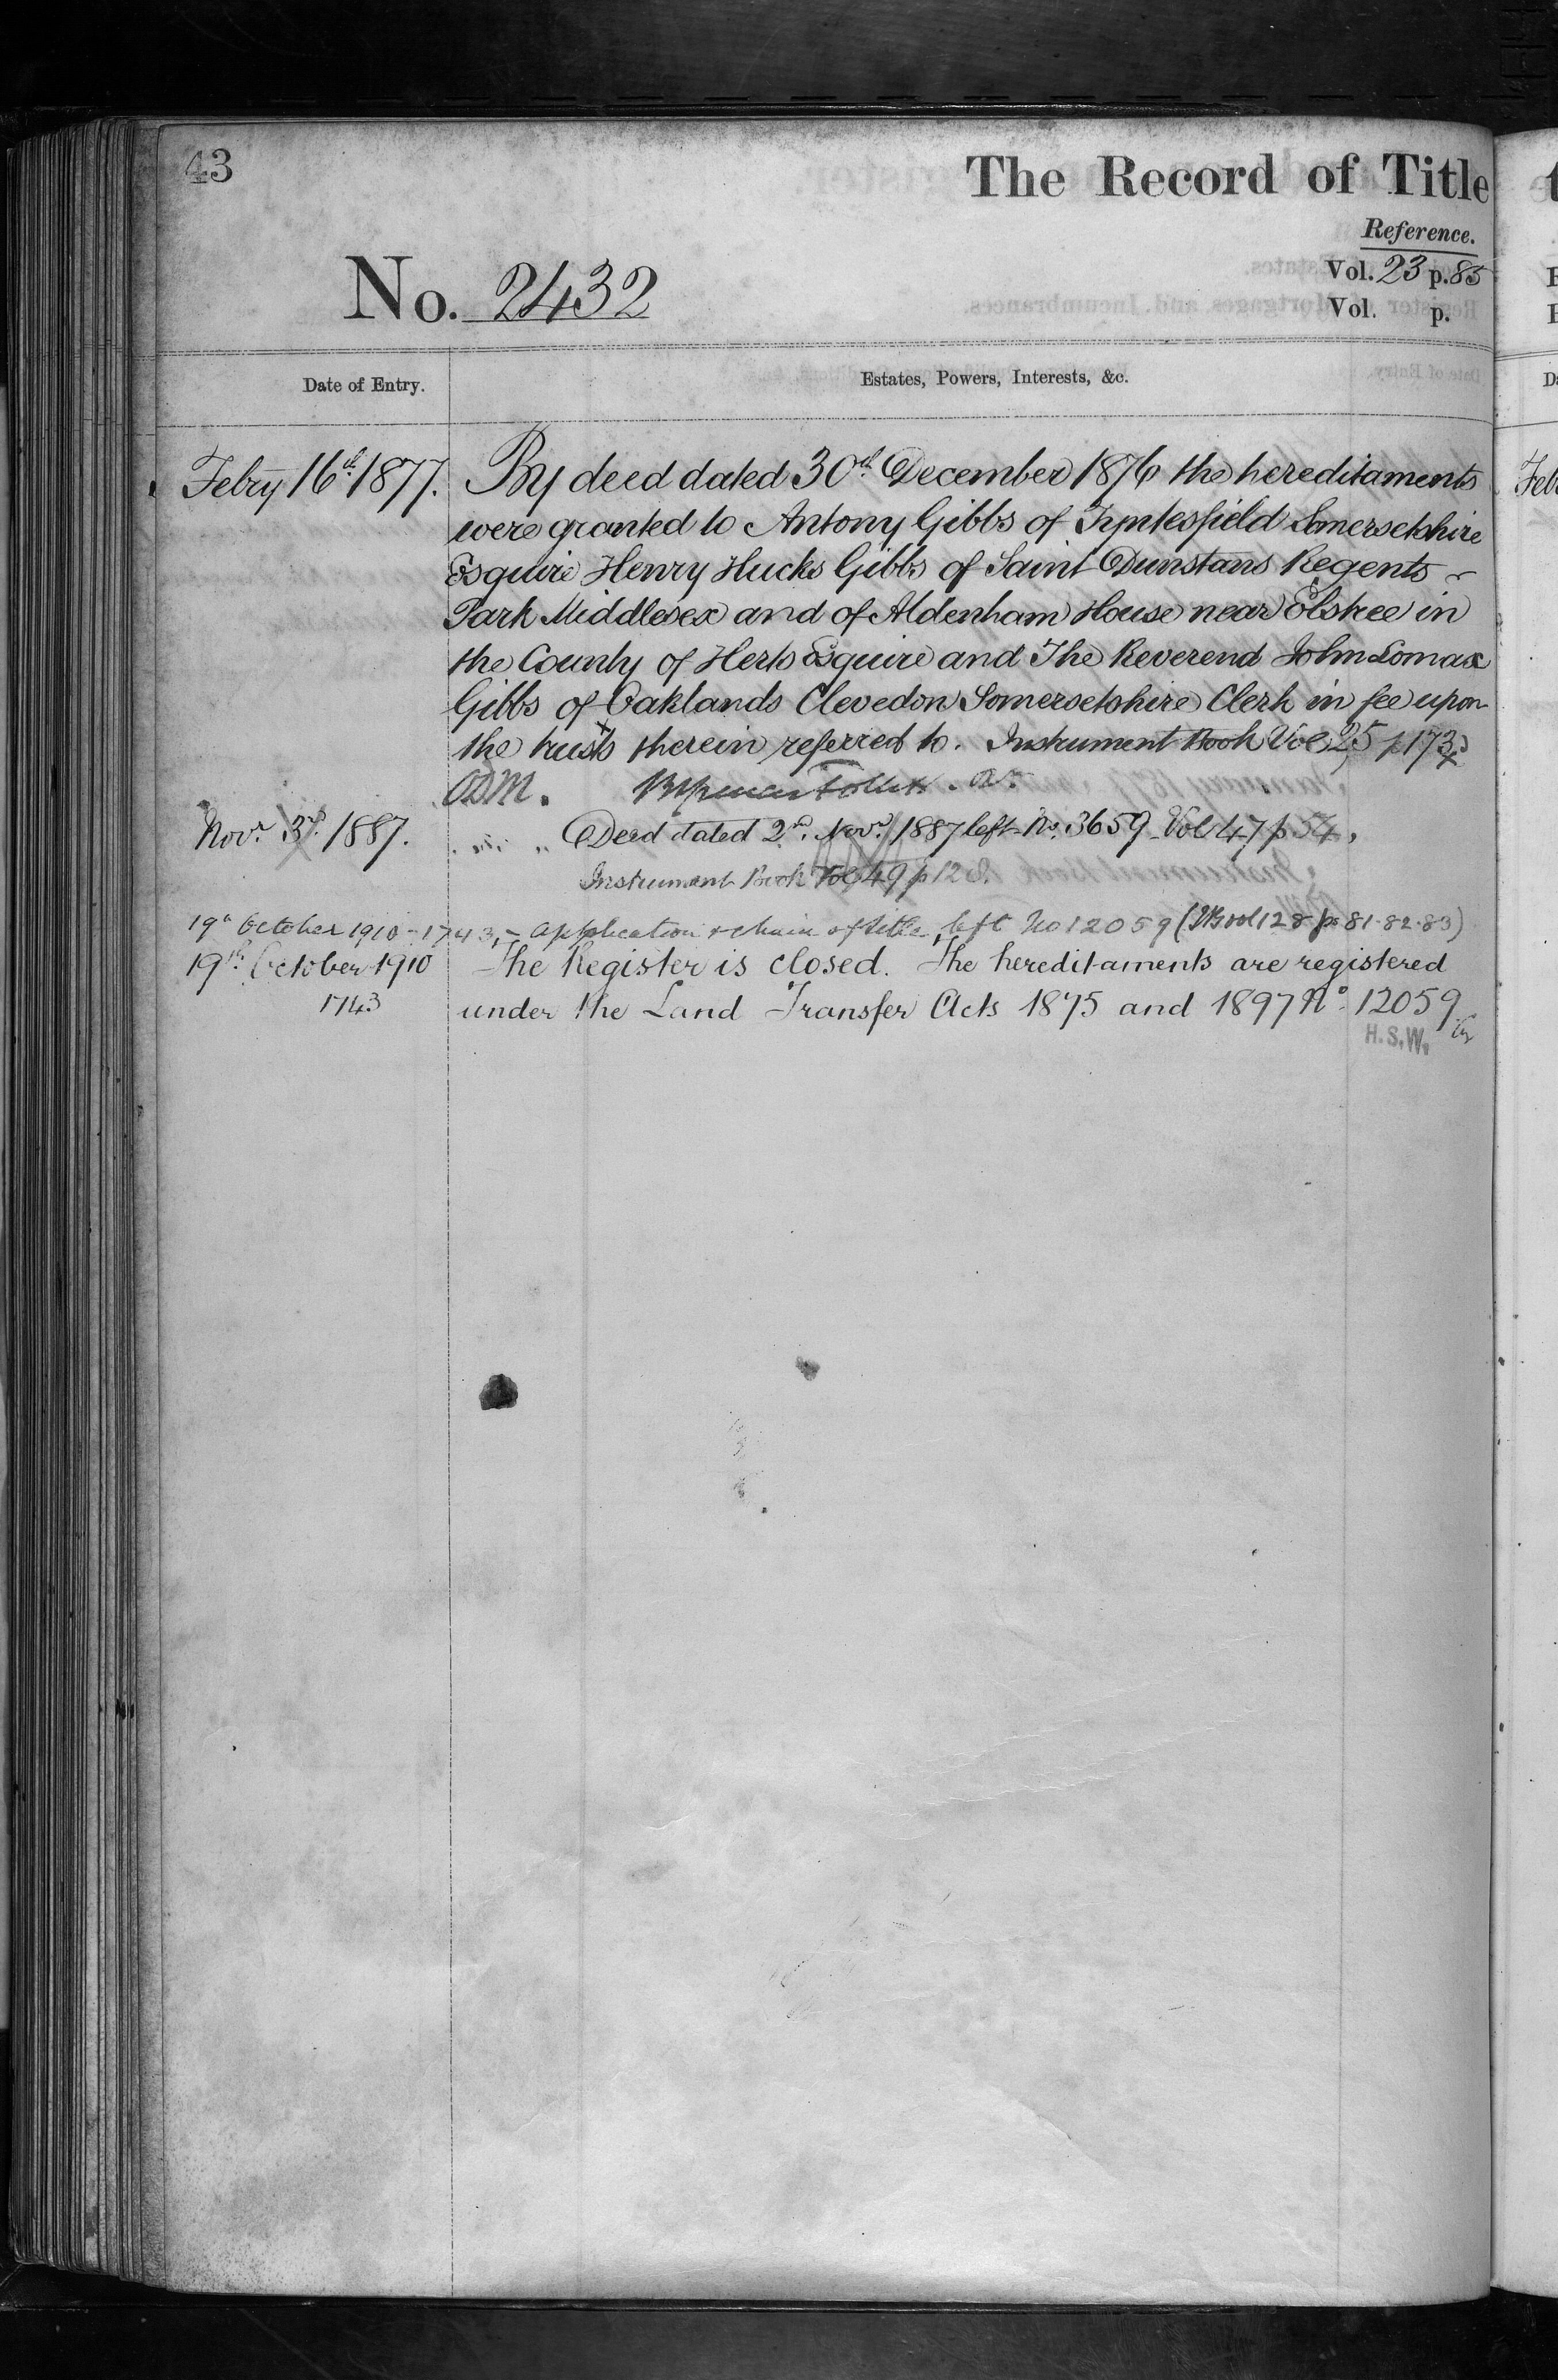 43
The Record of Title
Reference.
Vol. 23 p. 85
Vol. p.
No. 2432
Date of Entry.
Estates, Powers, Interests, &c.
Febry 16th 1877. By deed dated 30th December 1876 the hereditaments
were granted to Antony Gibbs of Tyntesfield Somersetshire
Esquire Henry Hucks Gibbs of Saint Dunstans Regents
Park Middlesex and of Aldenham House near Elstree in
the County of Herts Esquire and The Reverend John Lomax
Gibbs of Oaklands Clevedon Somersetshire Clerk in fee upon
the trusts therein referred to. Instrument Book Vol. 25 p 173.
ADM.
Novr. 3rd. 1887. Deed dated 2nd. Novr. 1887 left No. 3659 Vol 47 p 54,
Instrument Book Vol 49 p 128.
19th October 1910 - 1743, - application & chain of title left No 12059 (I Book 128 p 81-82-83)
19th October 1910 The Register is closed. The hereditaments are registered
1743 under the Land Transfer Acts 1875 and 1897 No. 12059
H.S.W.